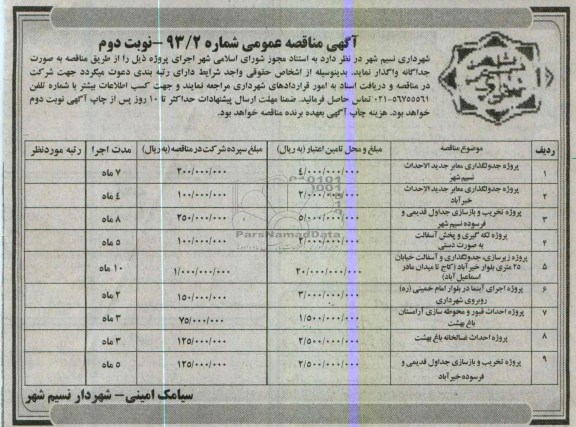 آگهی مناقصه عمومی شماره ۹۳/۲ -نوبت دوم
شهرداری نسیم شهر در نظر دارد به استناد مجوز شورای اسلامی شهر اجرای پروژه ذیل را از طریق مناقصه به صورت
جداگانه واگذار نماید. بدینوسیله از اشخاص حقوقی واجد شرایط دارای رتبه بندی دعوت میگردد جهت شرکت
در مناقصه و دریافت اسناد به امور قراردادهای شهرداری مراجعه نمایند و جهت کسب اطلاعات بیشتر با شماره تلفن
۵۶۷۵۵۵۶۱-۰۲۱ تماس حاصل فرمائید. ضمنا مهلت ارسال پیشنهادات حداکثر تا ۱۰ روز پس از چاپ آگهی نوبت دوم
خواهد بود. هزینه چاپ آگهی بعهده برنده مناقصه خواهد بود.
ردیف موضوع مناقصه مبلغ و محل تامین اعتبار (به ریال) مبلغ سپرده شرکت در مناقصه (به ریال) مدت اجرا رتبه موردنظر
۱ پروژه جدولگذاری معابر جدید الاحداث نسیم شهر ۴/۰۰۰/۰۰۰/۰۰۰ ۲۰۰/۰۰۰/۰۰۰ ۷ ماه
۲ پروژه جدولگذاری معابر جدید الاحداث خیرآباد ۲/۰۰۰/۰۰۰/۰۰۰ ۱۰۰/۰۰۰/۰۰۰ ۴ ماه
۳ پروژه تخریب و بازسازی جداول قدیمی و فرسوده نسیم شهر ۵/۰۰۰/۰۰۰/۰۰۰ ۲۵۰/۰۰۰/۰۰۰ ۸ ماه
۴ پروژه لکه گیری و پخش آسفالت به صورت دستی ۲/۰۰۰/۰۰۰/۰۰۰ ۱۰۰/۰۰۰/۰۰۰ ۵ ماه
۵ پروژه زیرسازی، جدولگذاری و آسفالت خیابان ۲۵ متری بلوار خیرآباد (کاج تا میدان مادر اسماعیل آباد) ۲۰/۰۰۰/۰۰۰/۰۰۰ ۱/۰۰۰/۰۰۰/۰۰۰ ۱۰ ماه
۶ پروژه اجرای آبنما در بلوار امام خمینی (ره) روبروی شهرداری ۳/۰۰۰/۰۰۰/۰۰۰ ۱۵۰/۰۰۰/۰۰۰ ۲ ماه
۷ پروژه احداث قبور و محوطه سازی آرامستان باغ بهشت ۱/۵۰۰/۰۰۰/۰۰۰ ۷۵/۰۰۰/۰۰۰ ۳ ماه
۸ پروژه احداث غسالخانه باغ بهشت ۲/۵۰۰/۰۰۰/۰۰۰ ۱۲۵/۰۰۰/۰۰۰ ۳ ماه
۹ پروژه تخریب و بازسازی جداول قدیمی و فرسوده خیرآباد ۲/۵۰۰/۰۰۰/۰۰۰ ۱۲۵/۰۰۰/۰۰۰ ۵ ماه
ParsNamadData
سیامک امینی- شهردار نسیم شهر